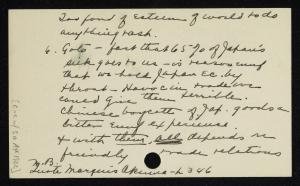 Too fond of Esteem of world to do
anything rash.
6. Goto - fact that 65% of Japan's
silk goes to us - is reassuring
that we hold Japan Ec. by
throat - Havoc in trade we
could give them terrible.
Chinese boycott of Jap. goods a
bitter Ex experience
& with them, depends on
friendly trade relations
N.B.
Quote Marquis Okuma - p 346